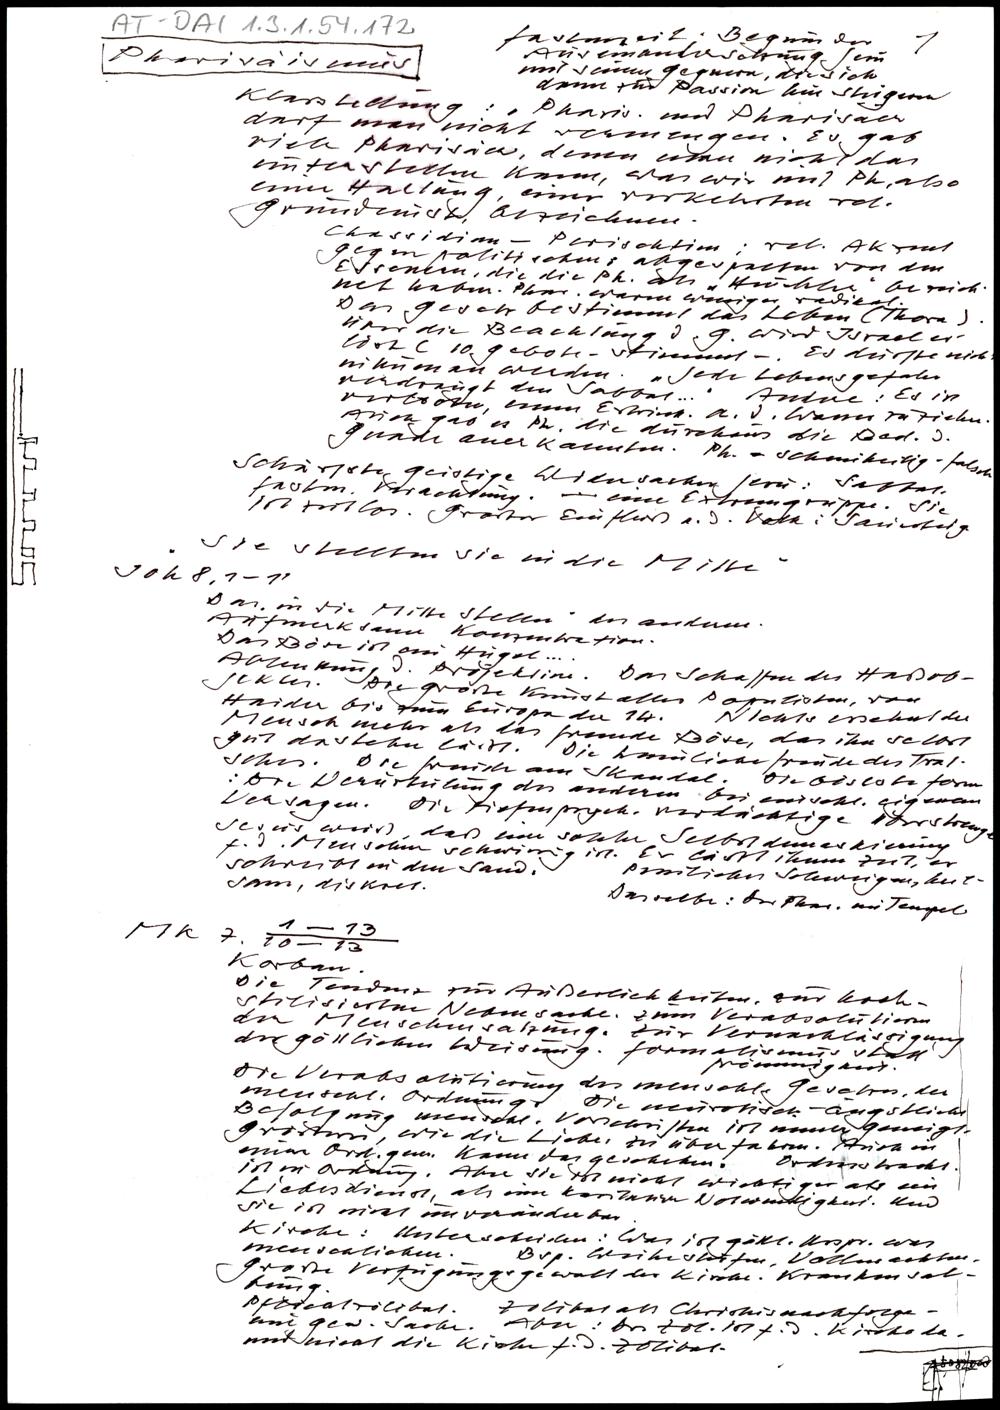 AT-DAI 1.3.1.54.172
Pharisäismus
Fastenzeit: Beginn der 1
Auseinandersetzung Jesu
mit seinen Gegnern, die sich
dann zur Passion hin steigern
Klarstellung: "Pharis. und Pharisäer
darf man nicht vermengen. Es gab
viele Pharisäer, denen man nicht das
unterstellen kann, was wir mit Ph, also
einer Haltung, einer verkehrten rel.
Grundeinst. bezeichnen.
Chassidim - Perischtim; rel. Akzent
gegen politischen; abgespalten von den
Essenern, die die Ph. als "Heuchler" bezeich-
net haben. Phar. waren weniger radikal.
Das Gesetz bestimmt das Leben (Thora).
Über die Beachtung d. G. wird Israel er-
löst (10 Gebote - stimmt -. Es dürfte nicht
werden. "Jede Lebensgefahr
verdrängt den Sabbat..." Andre: Es ist
verboten, einen Ertrink. a. d. Wasser zu ziehen.
Auch gab es Ph. die durchaus die Bed. d.
Gnade anerkannten. Ph. - scheinheilig - falsch
Schärfste geistige Widersacher Jesu: Sabbat.
Fasten. Verachtung. - eine Extremgruppe. Sie
ist zeitlos. Großer Einfluss a. d. Volk:
"Sie stellten sie in die Mitte"
Joh 8, 1-11
Das "in die Mitte stellen" des anderen.
Aufmerksame Konzentration.
Das Böse ist ein Hügel...
Ablenkung d. Projektion. Das Schaffen des Haßob-
jektes. Die große Kunst aller Populisten, von
Haider bis zum Europa der 14. Nichts
Mensch mehr als das fremde Böse, das ihn selbst
gut dastehen läßt. Die heimliche Freude des Trat-
sches. Die Freude am Skandal. Die Form
: Die Verurteilung des anderen bei eigenem
Versagen. Die tiefenpsych. verdächtige Überstrenge
Jesus weiß, daß eine solche Selbstdemaskierung
f. d. Menschen schwierig ist. Er läßt ihnen Zeit, er
schreibt in den Sand. Peinliches Schweigen, heil-
sam, diskret.
Dasselbe: Der Phar. im Tempel
Mk 7. 1 - 13
10 - 13
Korban.
Die Tendenz zur Äußerlichkeiten. zur hoch-
stilisierten Nebensache. zum Verabsolutieren
der Menschensatzung. Zur Vernachlässigung
der göttlichen Weisung. Formalismus statt
Frömmigkeit.
Die Verabsolutierung des menschl. Gesetzes, der
menschl. Ordnung. Die neurotisch-ängstliche
Befolgung menschl. Vorschriften ist immer geneigt
Größeres, wie die Liebe, zu überfahren. Auch in
einer Ord.gem. kann das geschehen. Ordenstracht.
ist in Ordnung. Aber sie ist nicht wichtiger als ein
Liebesdienst, als eine karitative Notwendigkeit. Und
sie ist nicht unveränderbar.
Kirche: Unterscheiden: Was ist göttl. Urspr. was
menschlichen. Bsp. Weihestufen, Vollmachten.
Große Verfügungsgewalt der Kirche. Krankensal-
bung.
Pflichtzölibat. Zölibat als Christusnachfolge -
eine gew. Sache. Aber: Der Zöl. ist f. d. Kirche da.
und nicht die Kirche f. d. Zölibat.